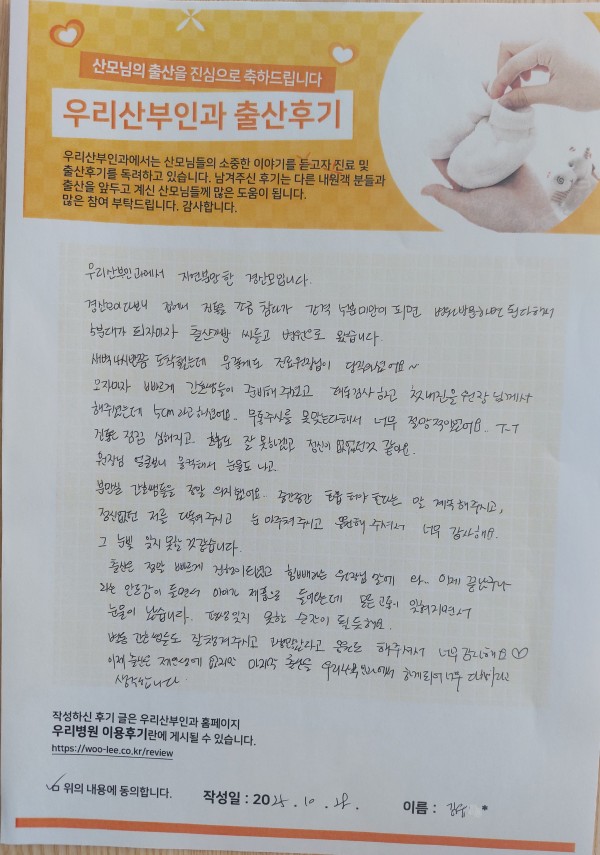 산모님의 출산을 진심으로 축하드립니다
우리산부인과 출산후기
우리산부인과에서는 산모님들의 소중한 이야기를 듣고자 진료 및
출산후기를 독려하고 있습니다. 남겨주신 후기는 다른 내원객 분들과
출산을 앞두고 계신 산모님들께 많은 도움이 됩니다.
많은 참여 부탁드립니다. 감사합니다.
우리산부인과에서 자연분만한 경산모입니다.
집에서 진통을 조금 참다가 간격 5분미만이 되면 병원방문하면 된다해서
5분대가 되자마자 출산가방 씨들고 병원으로 왔습니다.
새벽 4시반쯤 도착했는데 운좋게도 진료원장님이 당직이셨어요~
오자마자 빠르게 간호쌤들이 준비해주셨고 하고 첫내진을 원장님께서
해주셨는데 5cm라고하셨어요.. 무통주사를 못맞는다해서 너무 절망적이었어요.. ㅜ-ㅜ
진통은 점점 심해지고 호흡도 잘 못하겠고 정신이 없었던것 같아요.
원장님 얼굴보니 울컥해서 눈물도 나고.
분만실 간호쌤들을 정말 의지했어요. 중간중간 호흡 하라는 말 계속해주시고,
정신없던 저를 다독여주시고 눈 마주쳐주시고 응원해 주셔서 너무 감사해요.
그 눈빛 잊지 못할 것같습니다.
출산은 정말 빠르게 진행이되었고 힘빼라는 원장님 말에 와.. 이제 끝났구나
라는 안도감이 들면서 아기가 제품으로 들어왔는데 모든 고통이 잊혀지면서
눈물이 났습니다. 평생잊지 못할 순간이 될듯해요.
병동 간호쌤들도 잘챙겨주시고 고생많았다고 응원도 해주셔서 너무감사해요♡
이제 출산은 제인생에 없지만 마지막 출산을 우리산부인과에서 하게되어너무 다행이라고
생각합니다.
작성하신 후기 글은 우리산부인과 홈페이지
우리병원 이용후기란에 게시될 수 있습니다.
https://woo-lee.co.kr/review
위의 내용에 동의합니다. 작성일 : 2025. 10. 28. 이름 : *